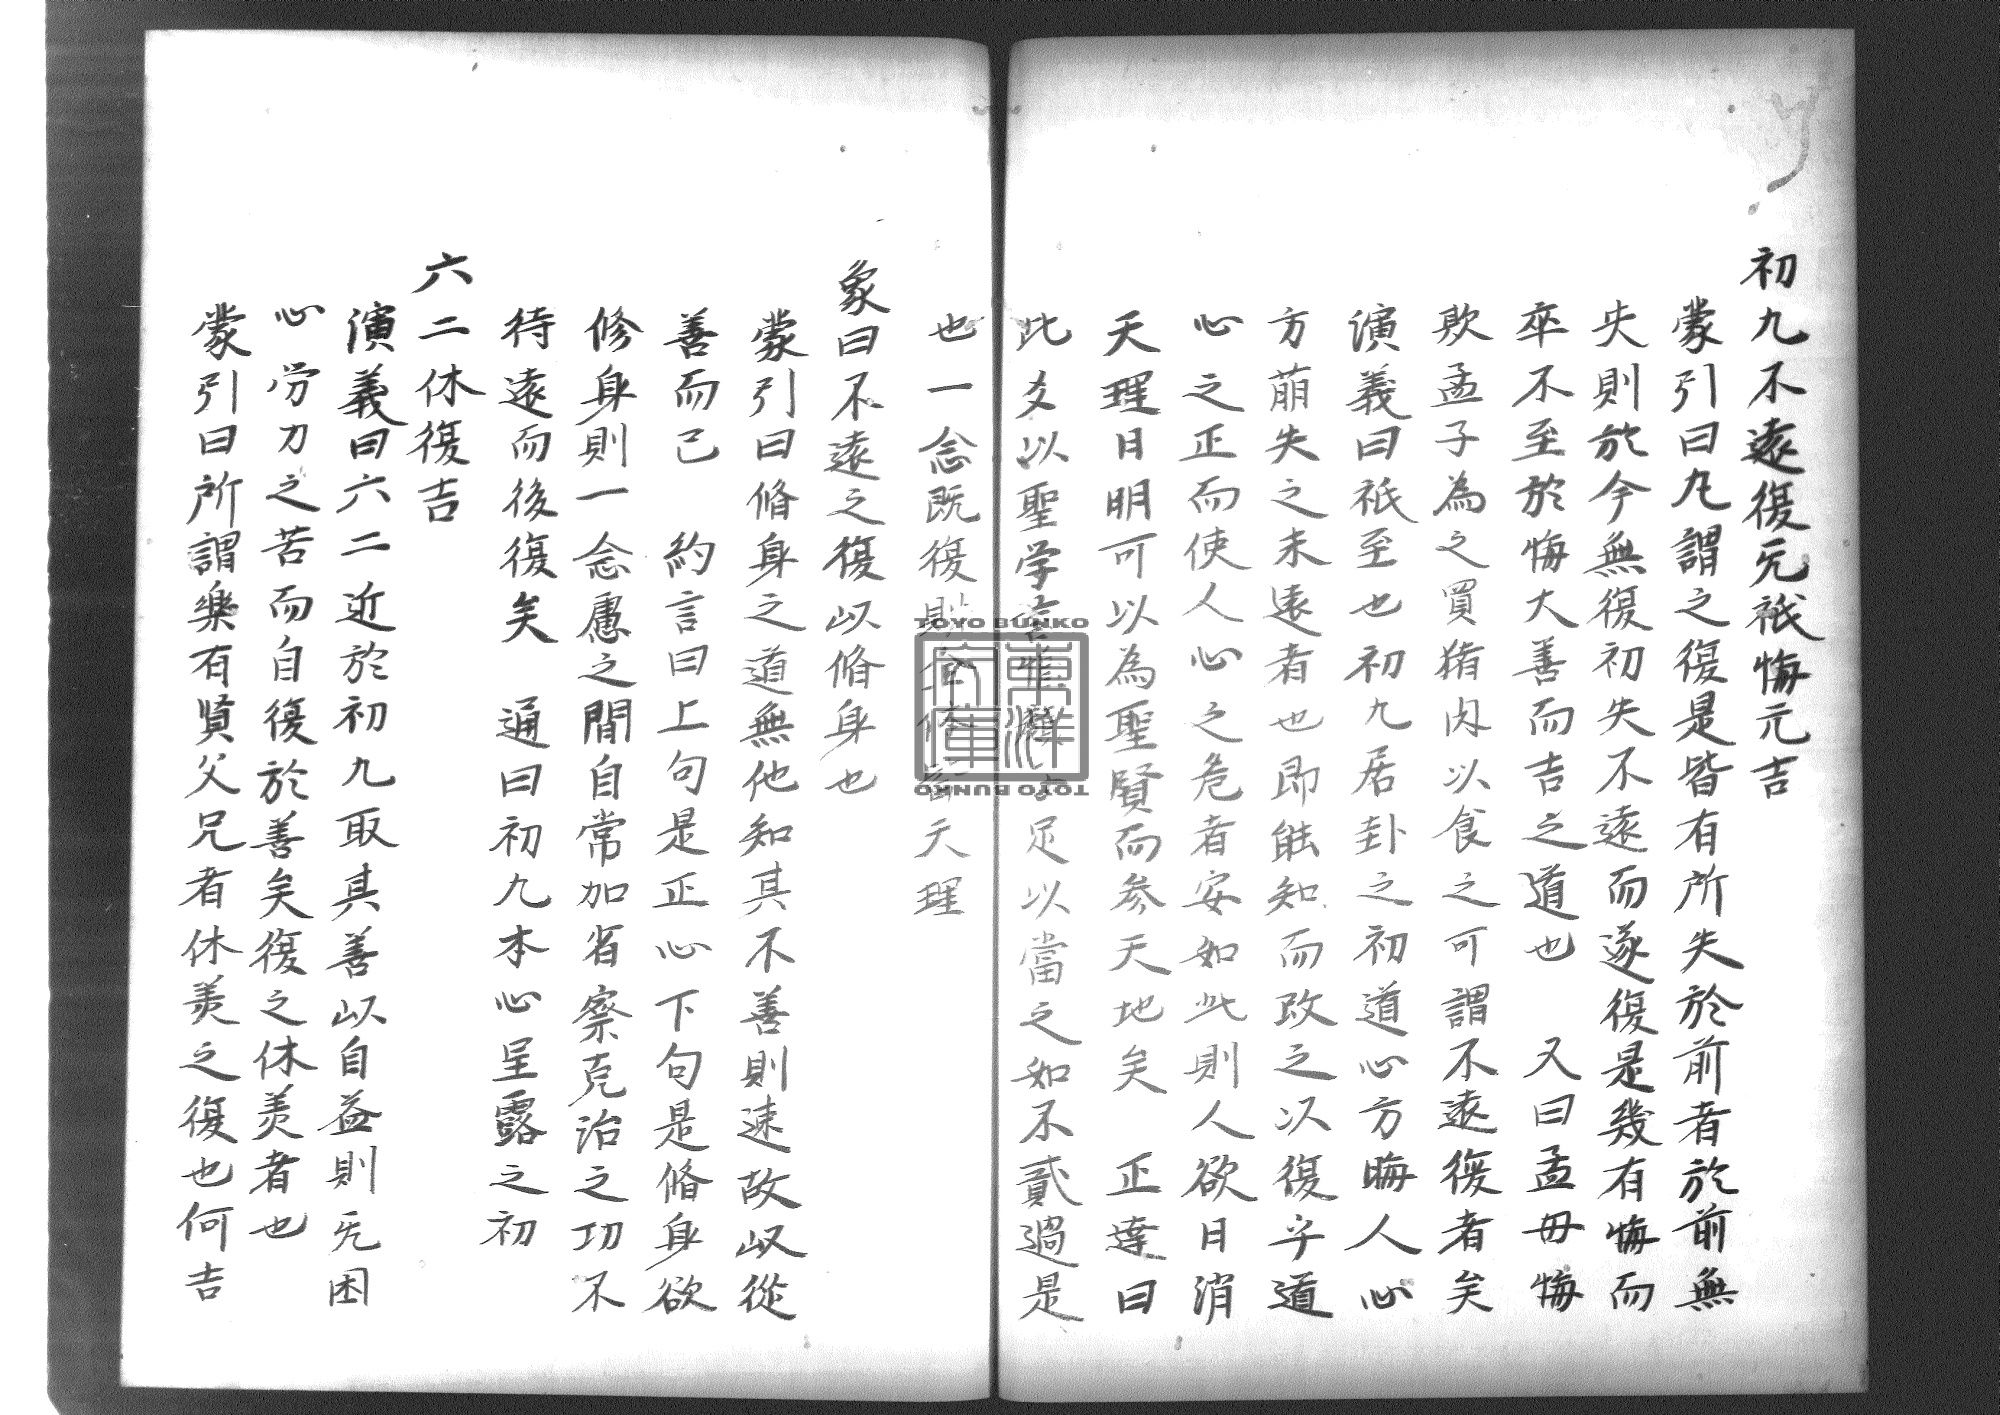 初九不遠復无祇悔元吉
蒙引曰凡謂之復是皆有所失於前者於前無
失則於今無復初失不遠而遂復是幾有悔而
卒不至於悔大善而吉之道也　又曰孟母悔
欺孟子為之買猪肉以食之可謂不遠復者矣
演義曰祇至也初九居卦之初道心方晦人心
方萠失之未遠者也即能知而改之以復乎道
心之正而使人心之危者安如此則人欲日消
天理日明可以為聖賢而参天地矣　正達曰
此爻以聖学言惟顔子足以當之如不貳過是
也一念既復則 天理
象曰不遠之復以脩身也
蒙引曰脩身之道無他知其不善則速故以從
善而已　約言曰上句是正心下句是脩身欲
修身則一念慮之間自常加省察克治之功不
待遠而後復矣　通曰初九本心呈露之初
六二休復吉
演義曰六二近於初九取其善以自益則无困
心労力之苦而自復於善矣復之休羙者也
蒙引曰所謂楽有賢父兄者休羙之復也何吉
TOYO BUNKO
東洋文庫
TOYO BUNKO